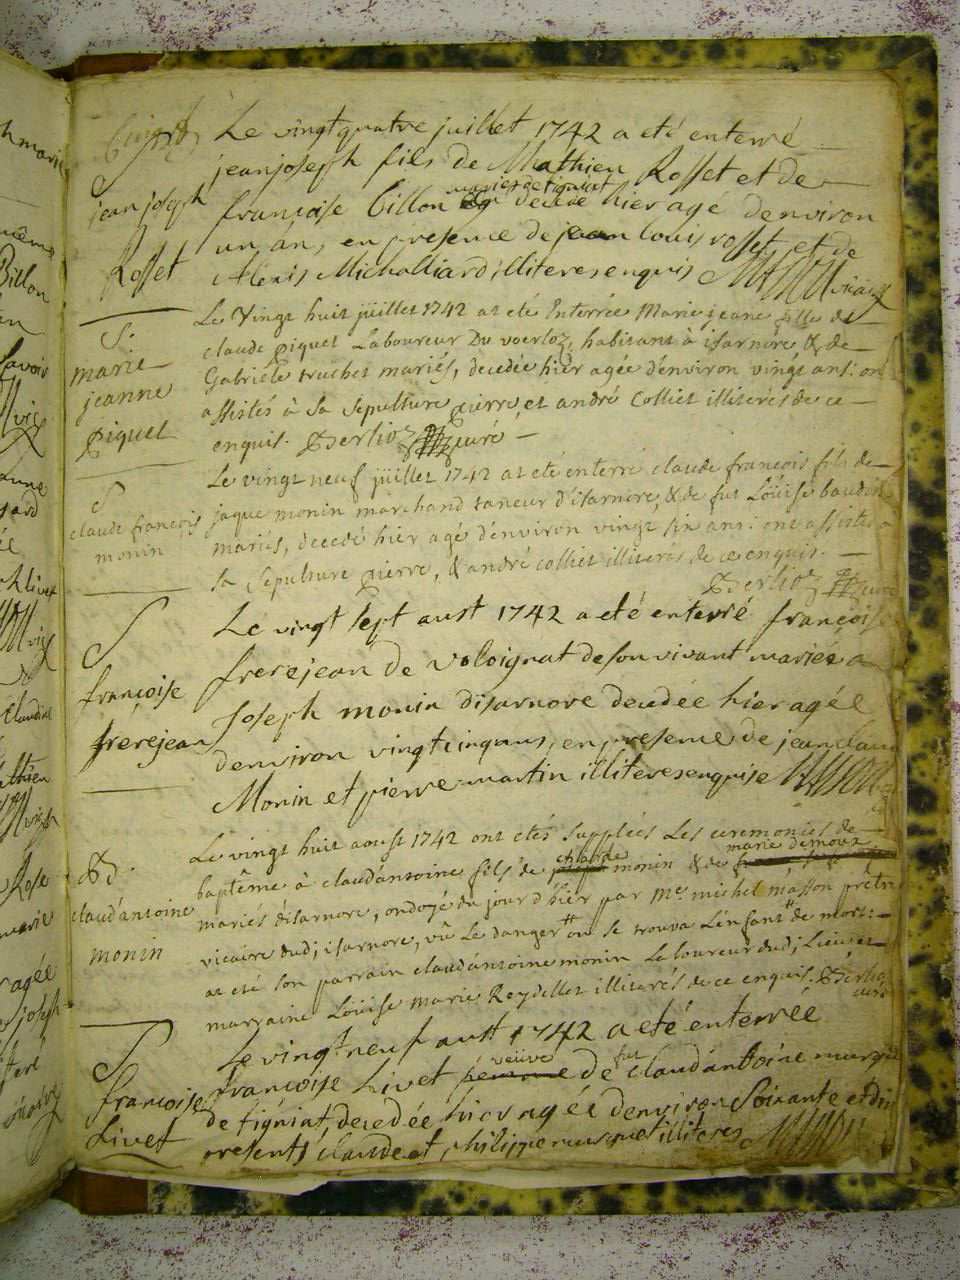 S
jean joseph
Rosset
Le vingtquatre juillet 1742 a eté enterré
jeanjoseph fils de Mathieu Rosset et de
mariés de tigniat
francoise Billon decédé hier agé denviron
un án, en presence de jean louis rosset et de
Alexis Michalliard illiteres enquis
S.
marie
jeanne
piquet
Le Vingt huit juillet 1742 at eté Interrée Marie jeane fille de
claude piquet Laboureur Du voerloz, habitant à isarnore & de
Gabriéle truchet mariés, decedée hier agée d'environ vingt ans: ont
assistés à Sa Sepulture pierre, et andré Colliet illiterés de ce
enquis. Berlioz curé
S
claude françois
monin
Le vingt neuf juillet 1742 at eté enterré claude françois fils de
jaque monin marchand taneur d'isarnore, & de fut Loüise baudin
mariés, decedé hier agé d'environ vingt six ans: ont assistés a
sa Sepulture pierre, & andré colliet illiterés de ce enquis.
Berlioz curé
S
francoise
frerejean
Le vingt sept aust 1742 a eté enterré françoise
frerejean de Voloignat de son vivant mariée a
Joseph monin disarnore decedée hier agée
denviron vingtcinqans, en presence de jean claude
Monin et pierre martin illiteres enquise
Bd.
claud'antoine
monin
Le vingt huit aoust 1742 ont etés Supplées Les ceremonies de
claude
marie demoux
baptême à claudantoine fils de monin & de
mariés d'isarnore, ondoyé du jour d'hier par Me. michel masson prêtre
vicaire dud; isarnore, vû Le danger ou se trouva L'enfant de mort:
at eté son parrain claud'antoine monin Laboureur dud; Lieu et
marraine Loüise marie Reydellet illiterés de ce enquis. Berlioz
curé
S
francoise
Livet
Le vingtneuf aust 1742 a eté enterrée
veuve
fut
francoise Livet de claudantoine
de tigniat, decedée hier agée denviron Soixante et dix
presents claude et philippe illiteres